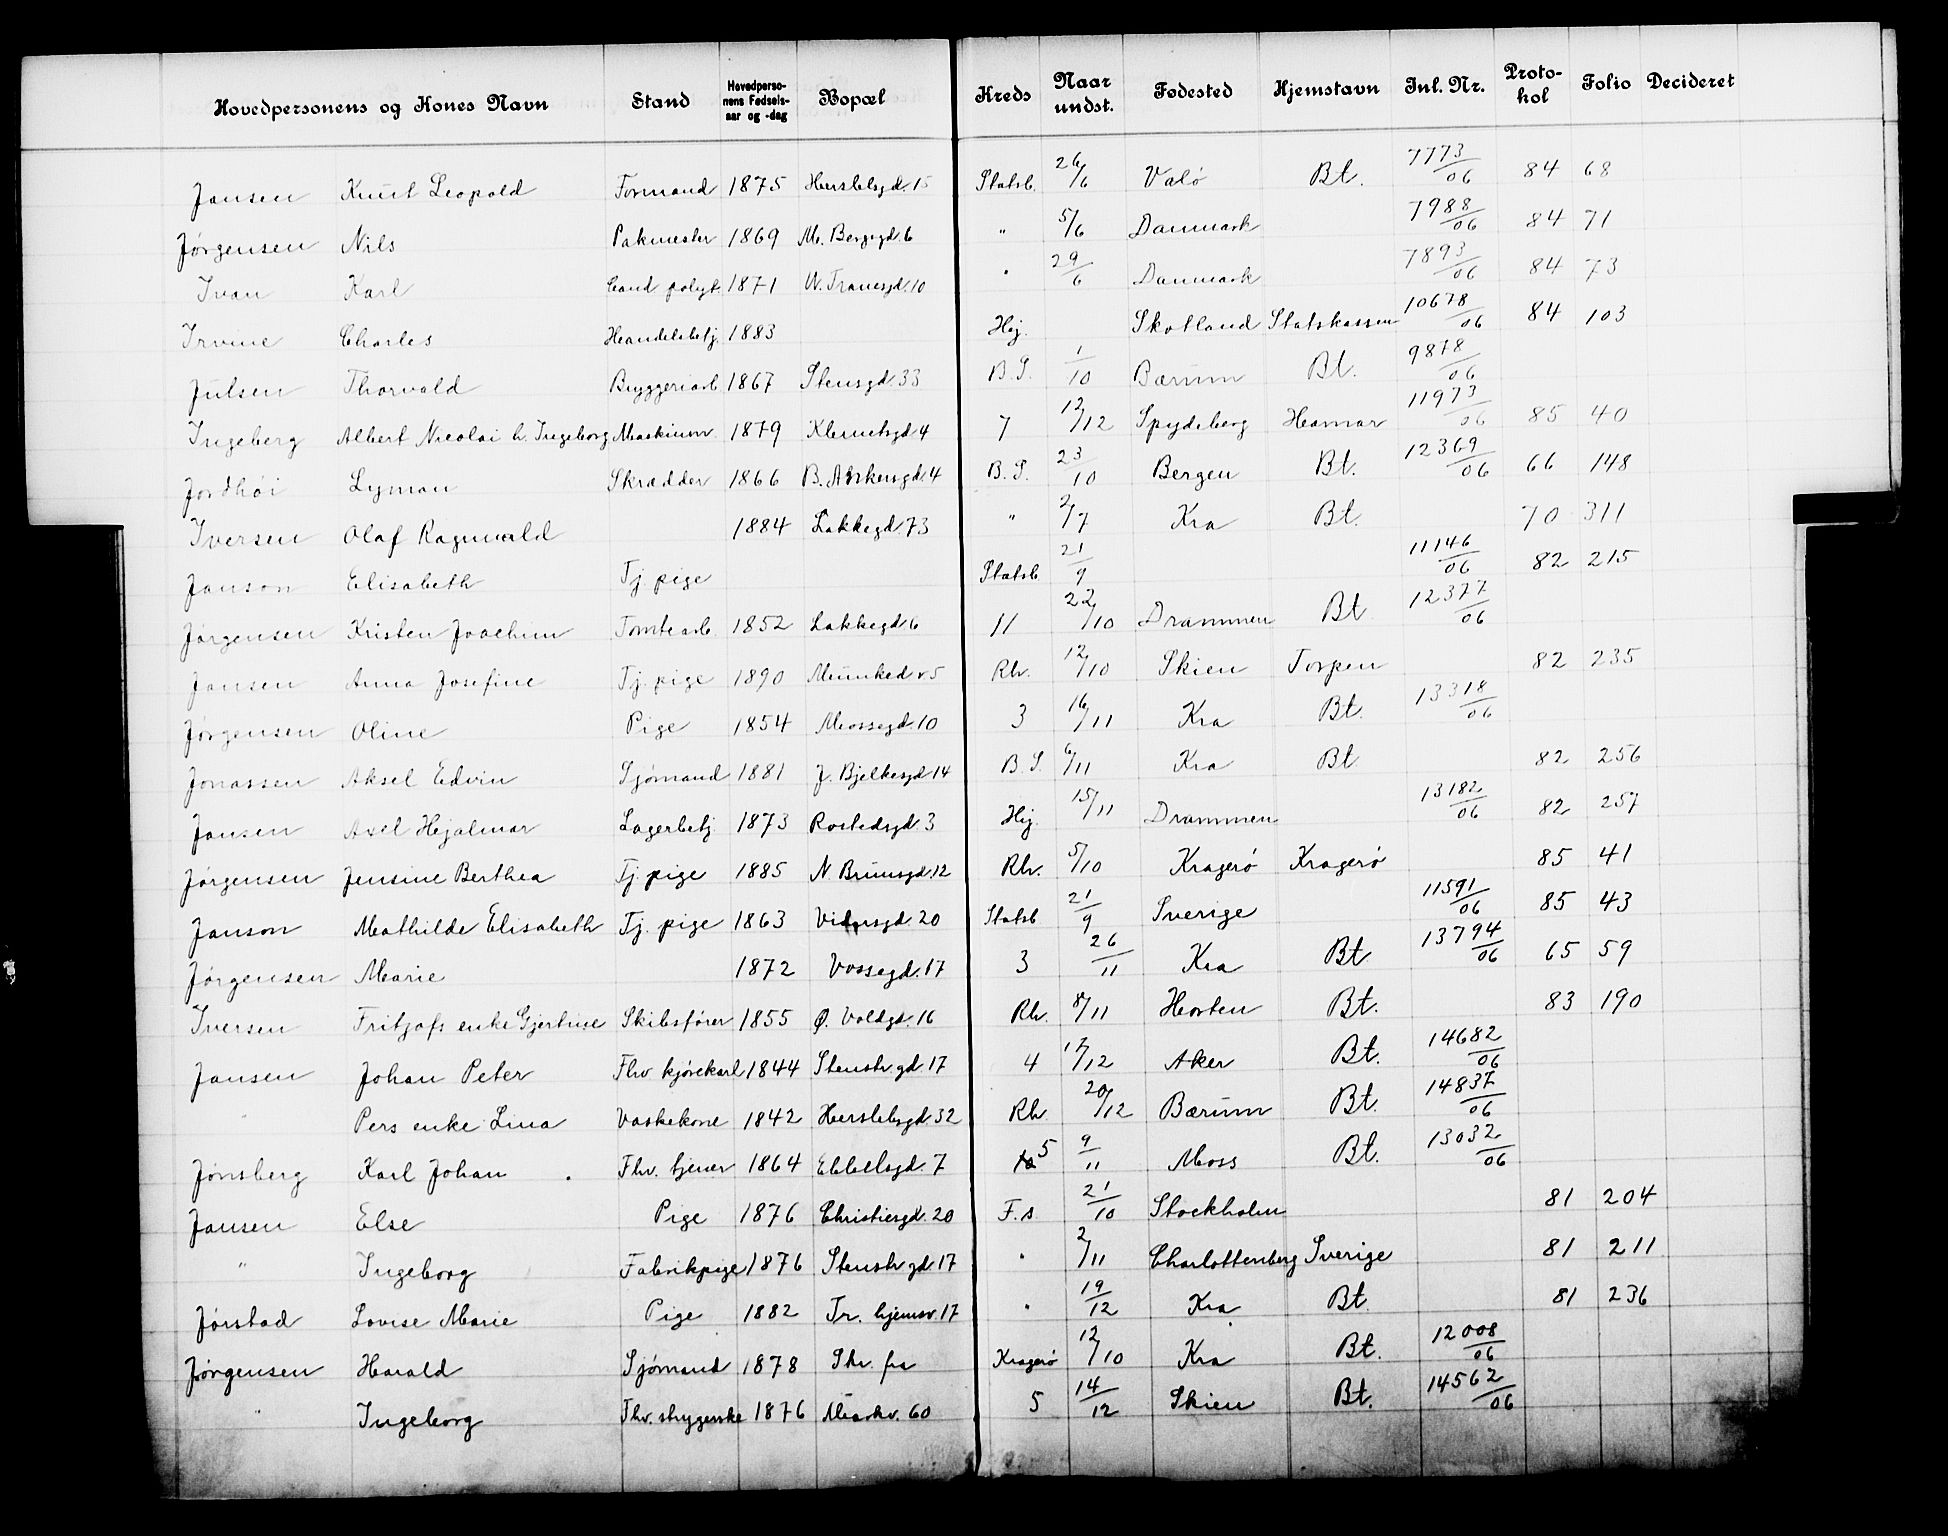 Hovedpersonens og Kones Navn Stand Hovedperso-nens Fødsels-aar og -dag Bopæl Kreds Naar undst. Fødested Hjemstavn Inl. Nr. Proto-kol Folio Decideret
Jansen Knut Leopold Formand 1875 Herslebsgd. 15 Statsb. 26/6 Valø Bt. 7773/06 84 68
Jørgensen Nils Pakmester 1869 M. Bergsgd. 6 " 5/6 Danmark 7988/06 84 71
Ivan Karl Cand polyt. 1871 W. Tranesgd. 10 " 29/6 Danmark 7893/06 84 73
Irvine Charles Handelsbetj. 1883 Hj. Skotland Statskassen 10678/06 84 103
Julsen Thorvald Bryggeriarb 1867 Stensgd. 33 B.S. 1/10 Bærum Bt. 9878/06
Ingeberg Albert Nicolai h. Ingeborg Maskinm. 1879 Klemetsgd 4 7 12/12 Spydeberg Hamar 11973/06 85 40
Jordhøi Lyman Skrædder 1866 B. Ankersgd. 4 B.S. 23/10 Bergen Bt. 12369/06 66 148
Iversen Olaf Ragnvald 1884 Lakkegd. 73 " 2/7 Kra Bt. 70 311
Janson Elisabeth Tj. pige Statsb 21/9 11146/06 82 215
Jørgensen Kristen Joachim Tomtearb. 1852 Lakkegd. 6 11 22/10 Drammen Bt. 12377/06
Jansen Anna Josefine Tj. pige 1890 Munked v 5 Rh. 12/10 Skien Torpen 82 235
Jørgensen Oline Pige 1854 Mossegd. 10 3 16/11 Kra Bt. 13318/06
Jonassen Aksel Edvin Sjømand 1881 J. Bjelkesgd 14 B.S. 6/11 Kra Bt 82 256
Jansen Axel Hjalmar Lagerbetj. 1873 Rostedsgd. 3 Hj. 15/11 Drammen 13182/06 82 257
Jørgensen Jensine Berthea Tj. pige 1885 N. Brunsgd. 12 Rh. 5/10 Kragerø Kragerø 85 41
Janson Mathilde Elisabeth Tj. pige 1863 Vidarsgd. 20 Statsb 21/9 Sverige 11591/06 85 43
Jørgensen Marie 1872 Vossegd. 17 3 26/11 Kra Bt 13794/06 65 59
Iversen Fritjofs enke Gjertine Skibsfører 1855 Ø. Voldgd. 16 Rh. 8/11 Horten Bt. 83 190
Jansen Johan Peter Fhv kjørekarl 1844 Stenstr gd. 17 4 17/12 Aker Bt. 14682/06
" Pers enke Lina Vaskekone 1842 Herslebsgd. 32 Rh. 20/12 Bærum Bt. 14837/06
Jønsberg Karl Johan Fhv. tjener 1864 Ebbelsgd. 7 5 9/11 Moss Bt. 13032/06
Jansen Else Pige 1876 Christiesgd. 20 F.s. 21/10 Stockholm 81 204
" Ingeborg Fabrikpige 1876 Stenstr gd 17 " 2/11 Charlottenberg Sverige 81 211
Jørstad Lovise Marie Pige 1882 Tr. hjemsv. 17 " 19/12 Kra Bt 81 236
Jørgensen Harald Sjømand 1878 Skr. fra Kragerø 12/10 Kra Bt. 12008/06
" Ingeborg Fhv. strygerske 1876 Markv. 60 5 14/12 Skien Bt. 14562/06